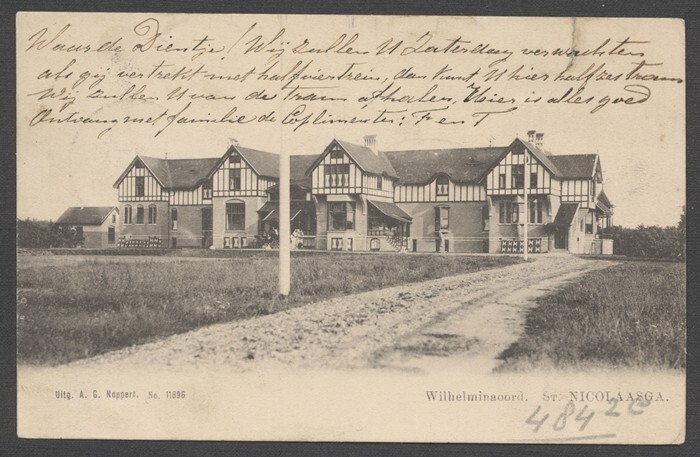 Waarde Dientje! Wij zullen U Zaterdag verwachten
als gij vertrekt met halfviertrein, dan kunt U hier halfzes tram
Wij zullen U van de tram afhalen, Hier is alles goed
Ontvang met familie de Complimenten: F en T
Uitg. A. G. Neppert. No. 11896
Wilhelminaoord. St. NICOLAASGA.
484 2e